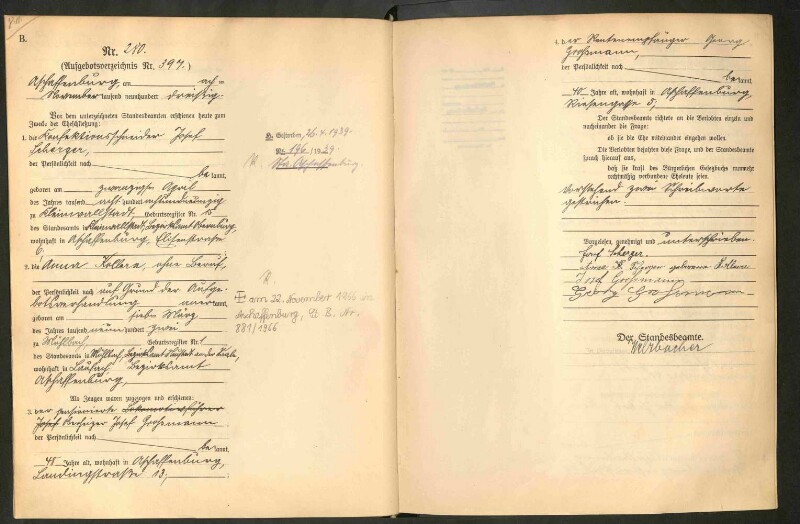 B.
Nr. 240.
(Aufgebotsverzeichnis Nr. 397.)
Aschaffenburg, am acht
November tausend neunhundert dreißig.
Vor dem unterzeichneten Standesbeamten erschienen heute zum
Zweck der Eheschließung:
1. der Konfektionsschneider Josef
Scherger,
der Persönlichkeit nach
bekannt,
geboren am zwanzigsten April
des Jahres tausend achthundertachtundneunzig
zu Kleinwallstadt, Geburtsregister Nr.
des Standesamts in Kleinwallstadt, Bezirksamt Obernburg,
wohnhaft in Aschaffenburg, Elisenstraße
6.
2. die Anna Kollera, ohne Beruf,
der Persönlichkeit nach auf Grund der Aufge-
botsverhandlung anerkannt,
geboren am sieben März
des Jahres tausend neunhundert zwei
zu Mühlbach Geburtsregister Nr. 1
des Standesamts in Mühlbach, Bezirksamt Neustadt an der Saale,
wohnhaft in Laufach Bezirksamt
Aschaffenburg,
Als Zeugen waren zugezogen und erschienen:
3. der pensionierte Lokomotivführer
Josef Josef Großmann
der Persönlichkeit nach
bekannt,
48 Jahre alt, wohnhaft in Aschaffenburg,
Landingstraße 13,
H. Gestorben 26.X.1939.
Nr. 196/1939
Sta. Aschaffenburg
H.
am 22. November 1966 in
Aschaffenburg, St. B. Nr.
881/1966
4. der Rentenempfänger Georg
Großmann,
der Persönlichkeit nach
bekannt,
40 Jahre alt, wohnhaft in Aschaffenburg,
Riesengasse 5,
Der Standesbeamte richtete an die Verlobten einzeln und
nacheinander die Frage:
ob sie die Ehe miteinander eingehen wollen.
Die Verlobten bejahten diese Frage, und der Standesbeamte
sprach hierauf aus,
daß sie kraft des Bürgerlichen Gesetzbuchs nunmehr
rechtmäßig verbundene Eheleute seien.
Vorstehend zwei Schreibworte
gestrichen.
Vorgelesen, genehmigt und unterschrieben.
Josef Scherger.
Anna Scherger geborene Kollera
Josef Großmann
Georg Großmann
Der Standesbeamte.